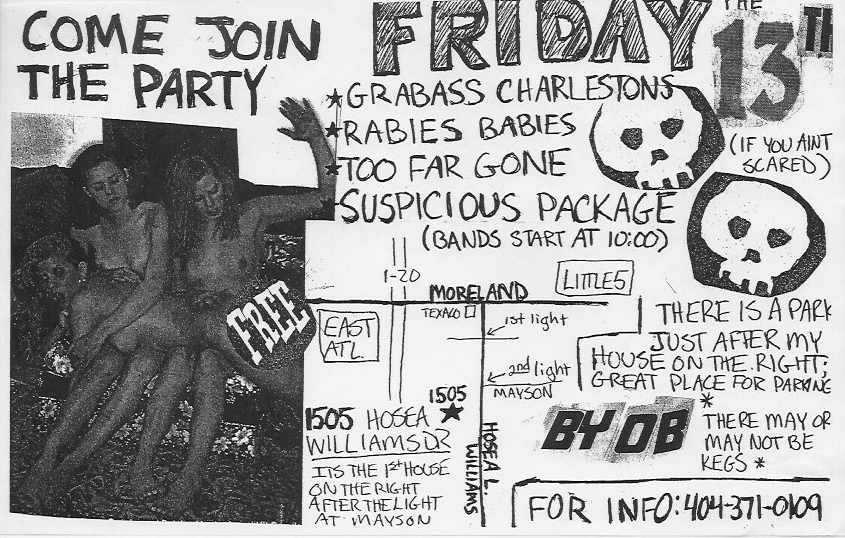 COME JOIN
THE PARTY
FRIDAY
THE
13TH
★GRABASS CHARLESTONS
★RABIES BABIES
★TOO FAR GONE
★SUSPICIOUS PACKAGE
(BANDS START AT 10:00)
(IF YOU AINT
SCARED)
FREE
I-20
MORELAND
LITTLE 5
TEXACO
EAST
ATL.
1st light
2nd light
MAYSON
1505
HOSEA L.
WILLIAMS
1505 HOSEA
WILLIAMS DR
ITS THE 1st HOUSE
ON THE RIGHT
AFTER THE LIGHT
AT MAYSON
THERE IS A PARK
JUST AFTER MY
HOUSE ON THE RIGHT;
GREAT PLACE FOR PARKING
BYOB
*
THERE MAY OR
MAY NOT BE
KEGS *
FOR INFO: 404-371-0109